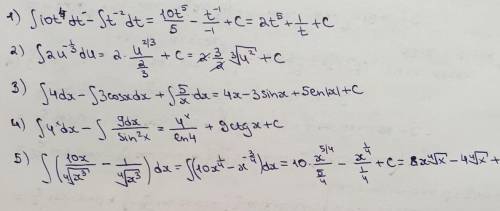 1) ∫10t⁴dt - ∫t⁻²dt = 10t⁵/5 - t⁻¹/-1 + C = 2t⁵ + 1/t + C
2) ∫2u^(-1/3)du = 2 · u^(2/3)/(2/3) + C = 2 · 3/2 ∛u² + C
3) ∫4dx - ∫3cosxdx + ∫5/x dx = 4x - 3sinx + 5ln|x| + C
4) ∫4ˣdx - ∫9dx/sin²x = 4ˣ/ln4 + 9ctgx + C
5) ∫(10x/∜x³ - 1/∜x³)dx = ∫(10x^(1/4) - x^(-3/4))dx = 10 · x^(5/4)/(5/4) - x^(1/4)/(1/4) + C = 8x∜x - 4∜x +